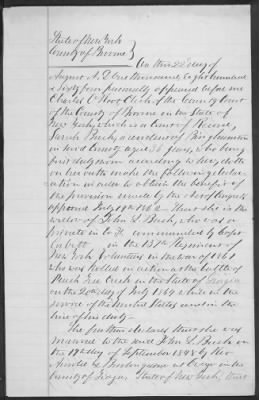 State of New York
County of Broome }
On this 22 day of
August A. D. one thousand eight hundred
& sixty four personally appeared before me
Charles O. Root Clerk of the County Court
of the County of Broome in the State of
New York, which is a court of Record,
Sarah Bush, a resident of Binghamton
in said County aged 36 years, who being
first duly sworn according to law, doth
on her oath make the following declar-
ation in order to obtain the benefit of
the provision made by the act of Congress
approved July 14th 1862. That she is the
widow of John L. Bush, who was a
private in Co. commanded by Capt
in the 137th Regiment of
New York Volunteers in the war of 1861
who was killed in action at the battle of
Peach Tree Creek in the State of Georgia
on the 20th day of July 1864 while in the
service of the United States and in the
line of his duty.
She further declares that she was
married to the said John L. Bush on
the 19th day of September 1848 by Rev
at Owego in the
County of Tioga State of New York, that